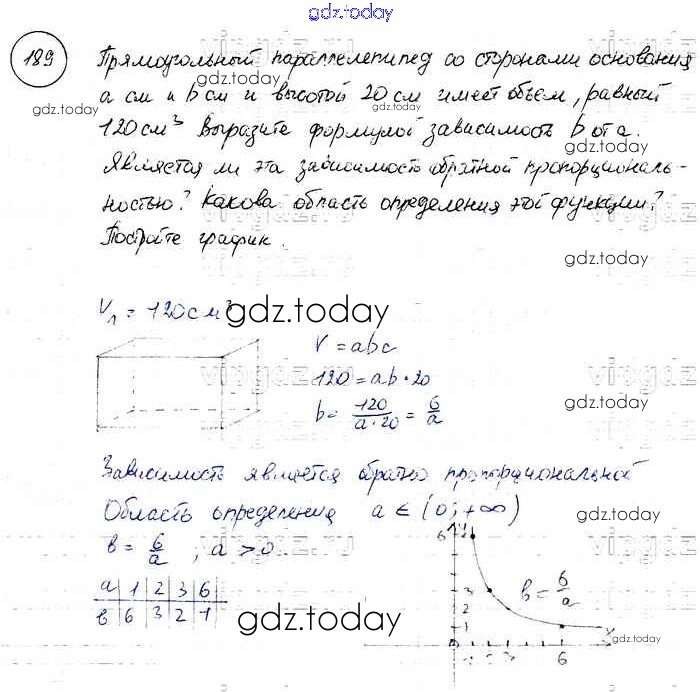 gdz.today
189 Прямоугольный параллелепипед со сторонами основания
a см и b см и высотой 20 см имеет объем, равный
120 см³ Выразите формулой зависимость b от a.
Является ли эта зависимость обратной пропорциональ-
ностью? Какова область определения этой функции?
Постройте график.
V₁ = 120 см³
V = abc
120 = ab · 20
b = 120/(a·20) = 6/a
Зависимость является обратно пропорциональной
Область определения a ∈ (0; +∞)
b = 6/a ; a > 0
a 1 2 3 6
b 6 3 2 1
6
3
2
1
b = 6/a
6
gdz.today
gdz.today
gdz.today
gdz.today
gdz.today
gdz.today
gdz.today
gdz.today
gdz.today
gdz.today